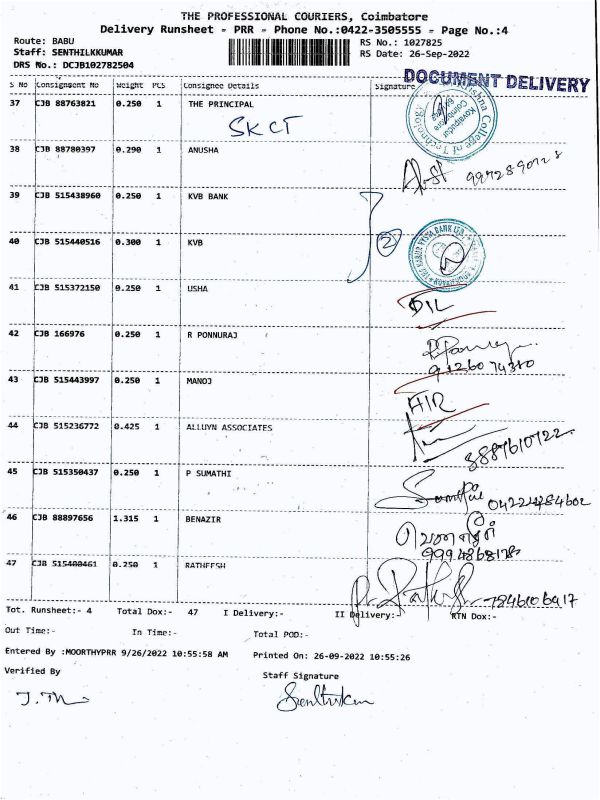 THE PROFESSIONAL COURIERS, Coimbatore
Delivery Runsheet - PRR - Phone No.:0422-3505555 - Page No.:4
Route: BABU
Staff: SENTHILKKUMAR
DRS No.: DCJB102782504
RS No.: 1027825
RS Date: 26-Sep-2022
DOCUMENT DELIVERY
S No Consignment No Weight PCS Consignee Details Signature
37 CJB 88763821 0.250 1 THE PRINCIPAL
SKCT
38 CJB 88780397 0.290 1 ANUSHA
39 CJB 515438960 0.250 1 KVB BANK
2
40 CJB 515440516 0.300 1 KVB
41 CJB 515372150 0.250 1 USHA
D/L
42 CJB 166976 0.250 1 R PONNURAJ
43 CJB 515443997 0.250 1 MANOJ
44 CJB 515236772 0.425 1 ALLUYN ASSOCIATES
45 CJB 515350437 0.250 1 P SUMATHI
46 CJB 88897656 1.315 1 BENAZIR
47 CJB 515400461 0.250 1 RATHEESH
Tot. Runsheet:- 4 Total Dox:- 47 I Delivery:- II Delivery:- RTN Dox:-
Out Time:- In Time:- Total POD:-
Entered By :MOORTHYPRR 9/26/2022 10:55:58 AM Printed On: 26-09-2022 10:55:26
Verified By Staff Signature